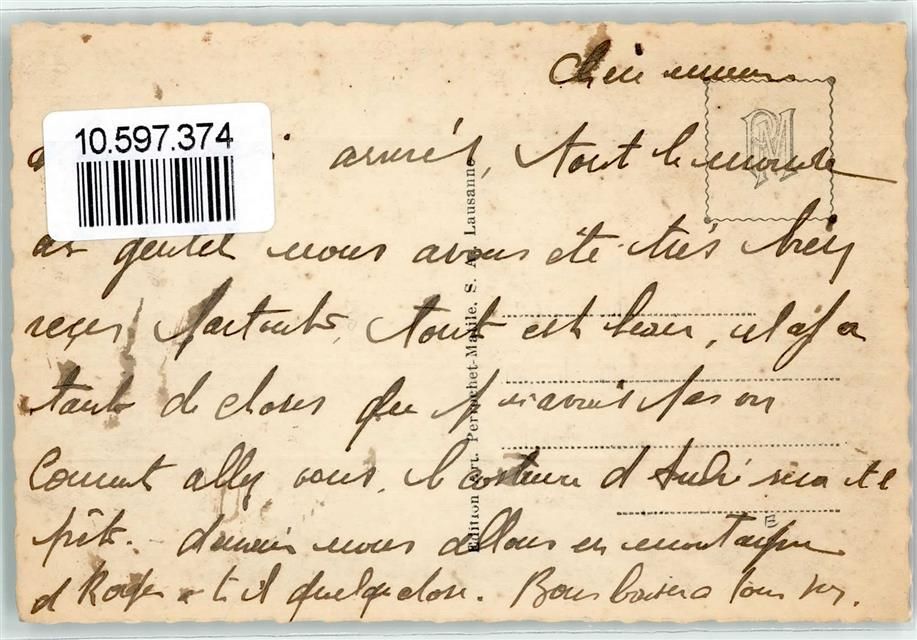 Chère
10.597.374
arrivés, tout le monde
est gentil nous avons été très bien
reçus partout, tout est beau, il y a
tant de choses que je n'avais pas vu
Comment allez vous, le costume d André sera t il
prêt. demain nous allons en montagne
et Roger a t il quelque chose. Bons baisers a tous
Edition Art. Perrochet-Matile. S. A. Lausanne
PM
E